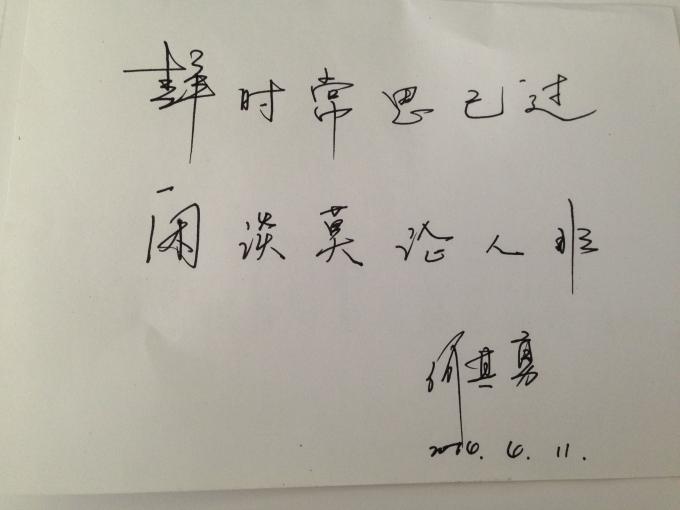 静时常思己过
闲谈莫论人非
何其勇
2016.6.11.